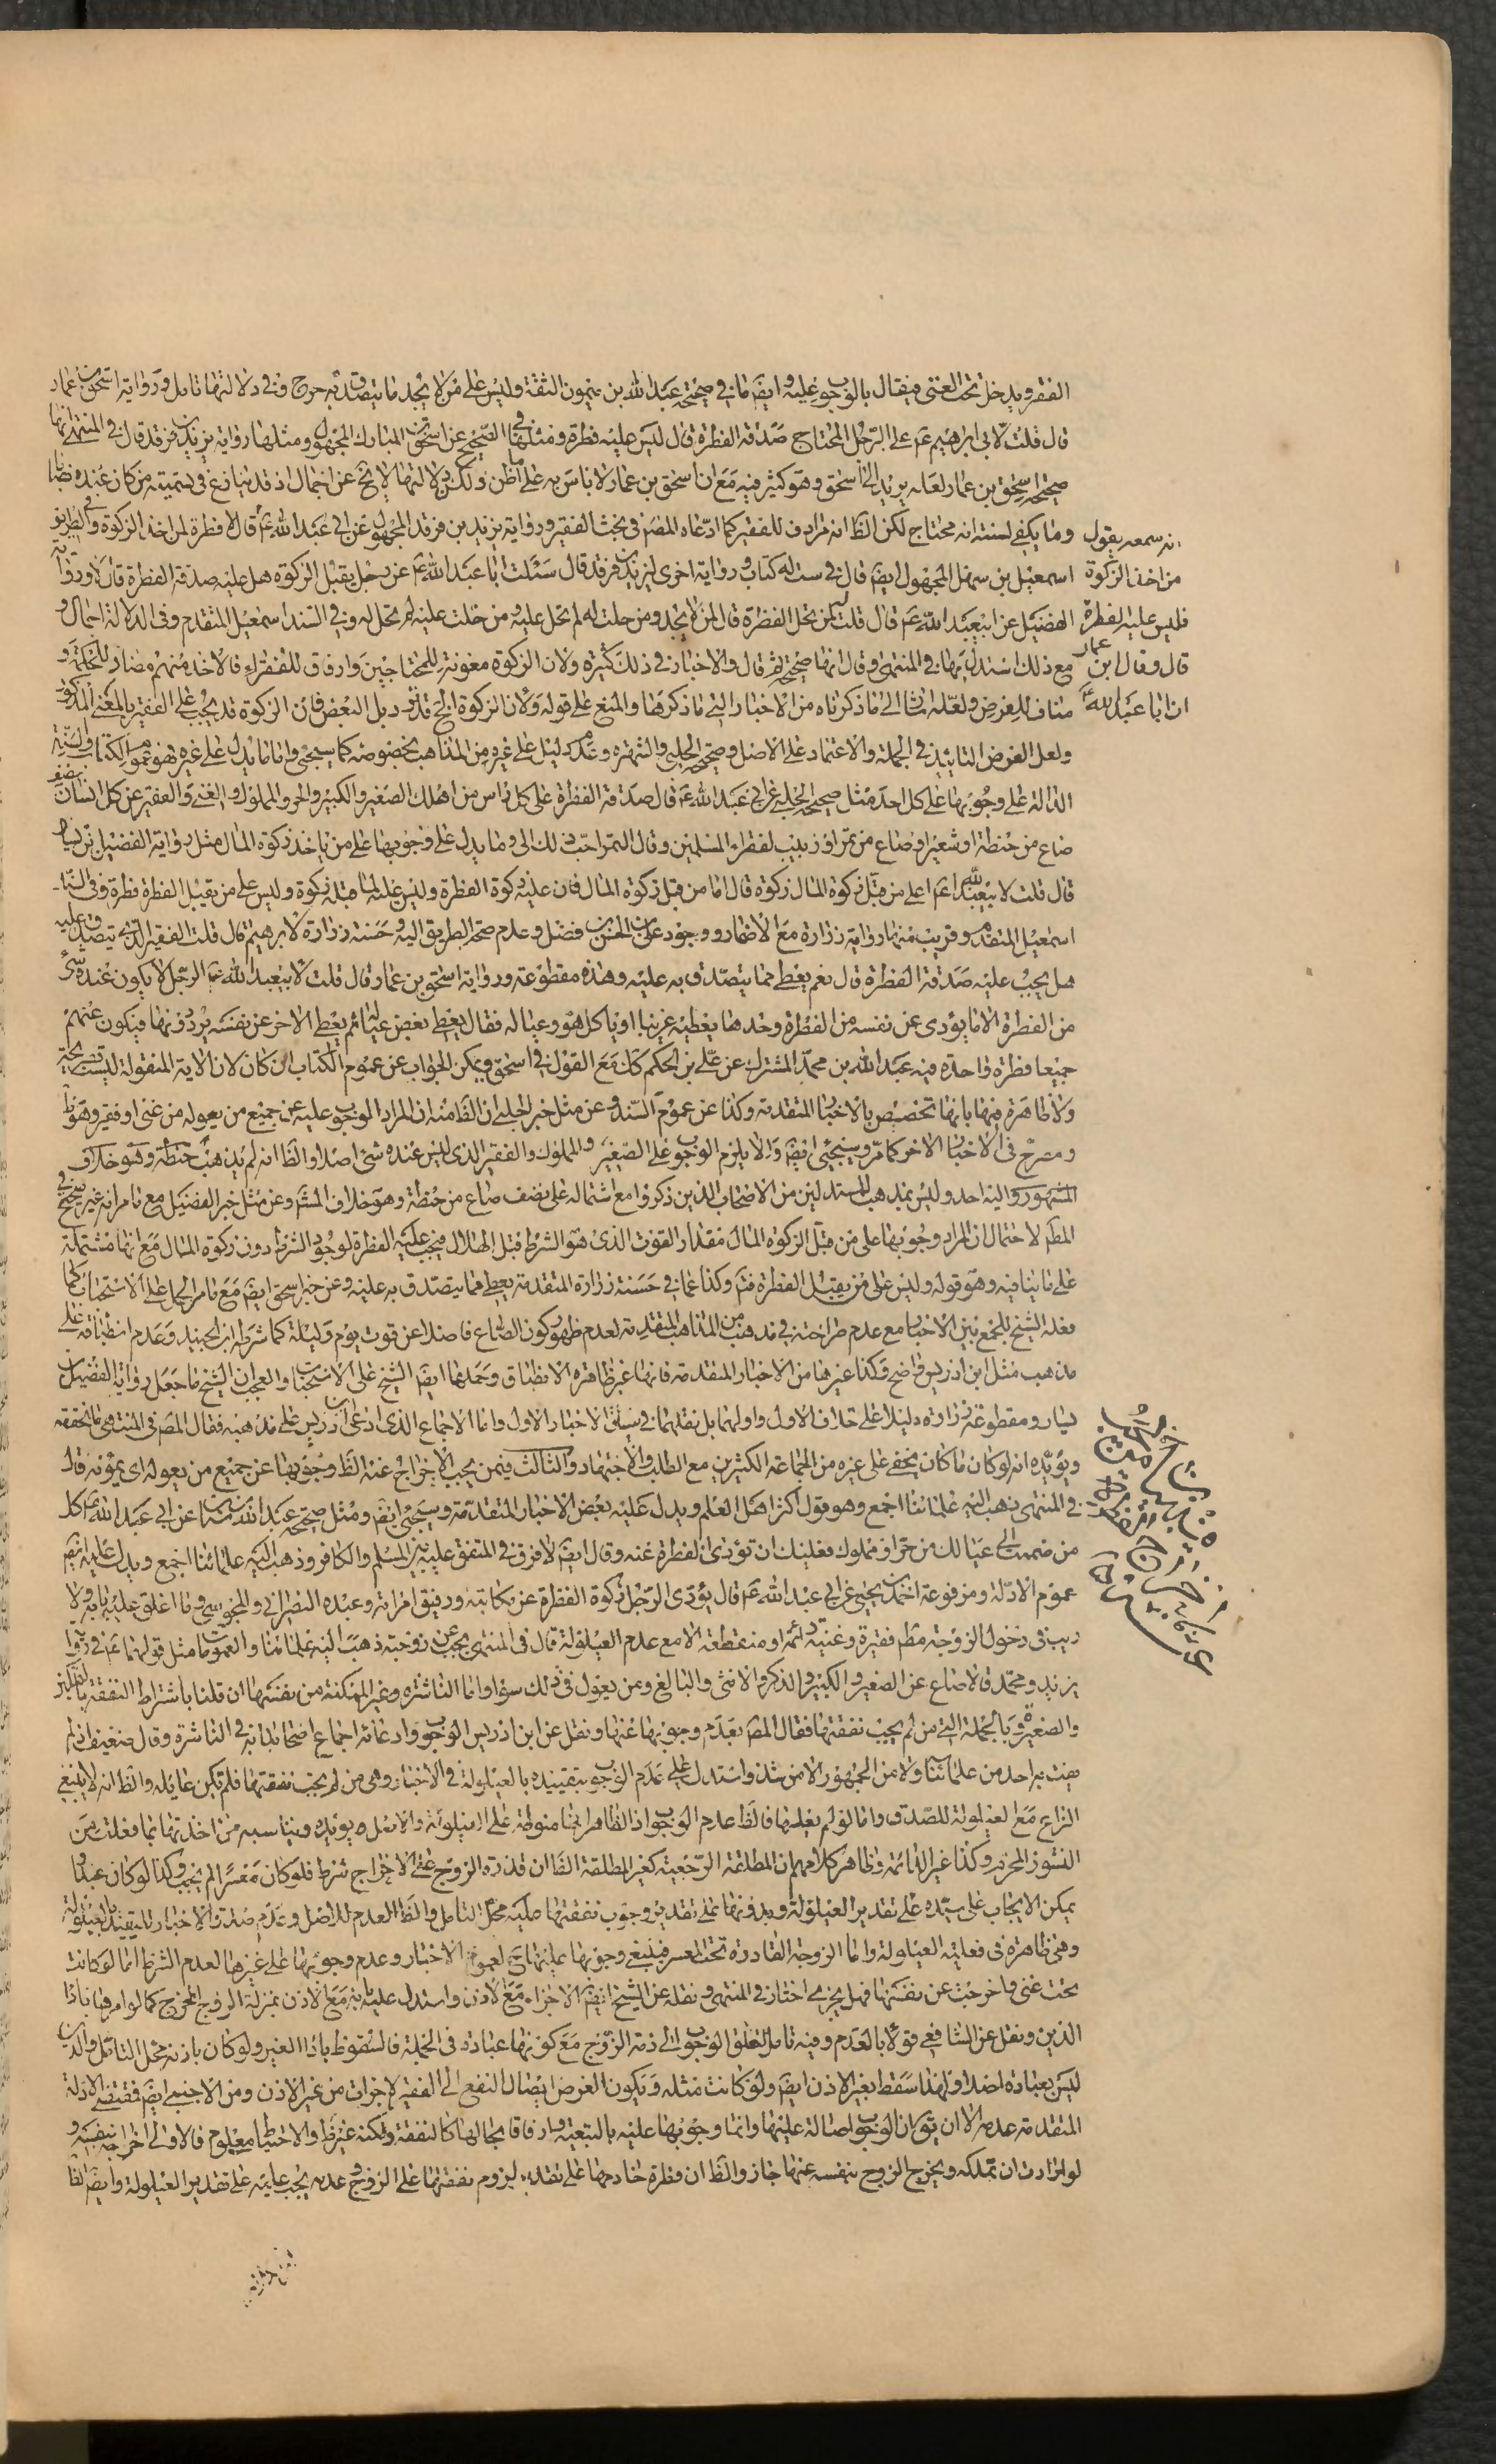 الفقر ويدخل تحت الغنى فيقال بالوجوب عليه وايضا ما في صحيحة عبد الله بن ميمون الثقة وليس على من لا يجد ما يتصدق به حرج وفي دلالتها تامل ورواية اسحق بن عمار
قال قلت لابي ابرهيم عم على الرجل المحتاج صدقة الفطرة قال ليس عليه فطرة ومثلها في الصحيح عن اسحق بن المبارك المجهول ومثلها رواية يزيد بن فرقد قال في المنتهى انها
صحيحة اسحق بن عمار لعله يريد الى اسحق وهو كثير فيه مع ان اسحق بن عمار لا باس به على ما اظن ولكن دلالتها لا تخ عن اجمال اذ قد ينازع في تسميته من كان عنده
وما يكفي لسنته انه محتاج لكن الظ انه مرادف للفقير كما ادعاه المصر في بحث الفقير ورواية يزيد بن فرقد المجهول عن ابي عبد الله عم قال لا فطرة لمن اخذ الزكوة وفي الطريق
انه سمعه يقول
من اخذ الزكوة
فليس عليه الفطرة
قال وقال ابن عمار
ان ابا عبد الله عم
اسمعيل بن سهل المجهول ايضا قال في ست له كتاب ورواية اخرى ليزيد بن فرقد قال سئلت ابا عبد الله عم عن رجل يقبل الزكوة هل عليه صدقة الفطرة قال لا ورواية
الفضيل عن ابيعبد الله عم قال قلت لمن تحل الفطرة قال لمن لا يجد ومن حلت له لم تحل عليه ومن حلت عليه لم تحل له وفي السند اسمعيل المتقدم وفي الدلالة اجمال و
مع ذلك استدل بها في المنتهى وقال انها صحيحة ثم قال والاخبار في ذلك كثيرة ولان الزكوة معونة للمحتاجين وارفاق للفقراء فالاخذ منهم مضاد للحكمة و
مناف للغرض ولعله اشار الى ما ذكرناه من الاخبار التي ما ذكرها والمنع على قوله ولان الزكوة الخ قد في دليل البعض فان الزكوة قد يجب على الفقير بالمعنى المذكور
ولعل الغرض التاييد في الجملة والاعتماد على الاصل وصحيحة الحلبي والشهرة وعدم دليل على غيره من المذاهب بخصوصه كما سيجئ واما ما يدل على غيره فهو عموم الكتاب والسنة
الدالة على وجوبها على كل احد مثل صحيحة الحلبي عن ابي عبد الله عم قال صدقة الفطرة على كل راس من اهلك الصغير والكبير والحر والمملوك والغني والفقير عن كل انسان نصف
صاع من حنطة او شعير او صاع من تمر او زبيب لفقراء المسلمين وقال التمر احب ذلك الي وما يدل على وجوبها على من ياخذ زكوة المال مثل رواية الفضيل بن يسار
قال قلت لابيعبد الله عم اعلى من قبل زكوة المال زكوة قال اما من قبل زكوة المال فان عليه زكوة الفطرة وليس عليه لما قبله زكوة وليس على من يقبل الفطرة فطرة وفي السند
اسمعيل المتقدم وقريب منها رواية زرارة مع الاضمار ووجود علي بن الحسن بن فضل وعدم صحة الطريق اليه وحسنة زرارة لابرهيم قال قلت الفقير الذي يتصدق عليه
هل يجب عليه صدقة الفطرة قال نعم يعطي مما يتصدق به عليه وهذه مقطوعة ورواية اسحق بن عمار قال قلت لابيعبد الله عم الرجل لا يكون عنده شئ
من الفطرة الا ما يؤدى عن نفسه من الفطرة وحدها يعطيه غريبا او ياكل هو وعياله فقال يعطي بعض عياله ثم يعطي الاخر عن نفسه يرددونها فيكون عنهم
جميعا فطرة واحدة فيه عبد الله بن محمد المشترك عن علي بن الحكم كك مع القول في اسحق ويمكن الجواب عن عموم الكتاب ان كان لان الاية المنقولة ليست بصريحة
ولا ظاهرة فيها بانها تخصيص بالاخبار المتقدمة وكذا عن عموم السند وعن مثل خبر الحلبي ان الظ منه ان المراد الوجوب عليه عن جميع من يعوله من غني او فقير وهو ظ
ومصرح في الاخبار الاخر كما مر وسيجئ ايضا والا يلزم الوجوب على الصغير والمملوك والفقير الذي ليس عنده شئ اصلا والظ انه لم يذهب وهو خلاف
المشهور واليه احد وليس بمذهب للمستدلين من الاصحاب الذين ذكروا مع اشتماله على نصف صاع من حنطة وهو خلاف المشهور وعن مثل خبر الفضيل مع ما مر انه غير صحيح في
المطم لاحتمال ان المراد وجوبها على من قبل الزكوة المال مقدار القوت الذي هو الشرط قبل الهلال فيجب عليه الفطرة لوجود الشرط دون زكوة المال مع انها مشتملة
على ما ينافيه وهو قوله وليس على من يقبل الفطرة فتم وكذا عما في حسنة زرارة المتقدمة يعطي مما يتصدق به عليه وعن خبر اسحق ايضا مع ما مر الحمل على الاستحباب كما
فعله الشيخ للجمع بين الاخبار مع عدم صراحته في مذهب من المذاهب المتقدمة لعدم ظهور كون الصاع فاضلا عن قوت يوم وليلة كما شرطه ابن الجنيد وعدم انطباقه على
مذهب مثل ابن ادريس واضح وكذا غيرها من الاخبار المتقدمة فانها غير ظاهرة الانطباق وحملها ايضا الشيخ على الاستحباب والعجب ان الشيخ ما جعل رواية الفضيل بن
يسار ومقطوعة زرارة دليلا على خلاف الاول واولهما بل نقلهما في سياق الاخبار الاول واما الاجماع الذي ادعى ابن ادريس على مذهبه فقال المصر في المنتهى ما تحققه
ويؤيده انه لو كان ما كان يخفى على غيره من الجماعة الكثيرين مع الطلب والاجتهاد والثالث فيمن يجب الاخراج عنه الظ وجوبها عن جميع من يعوله اي يمونه قال
في المنتهى ذهب اليه علمائنا اجمع وهو قول اكثر اهل العلم ويدل عليه بعض الاخبار المتقدمة وسيجئ ايضا ومثل صحيحة عبد الله بن سنان عن ابي عبد الله عم كل
من ضممت الى عيالك من حر او مملوك فعليك ان تؤدي الفطرة عنه وقال ايضا لا فرق في المتفق عليه بين المسلم والكافر وذهب اليه علمائنا اجمع ويدل عليه ايضا
عموم الادلة ومرفوعة احمد بن يحيى عن ابي عبد الله عم قال يؤدي الرجل زكوة الفطرة عن مكاتبه ورقيق امراته وعبده النصراني والمجوسي وما اغلق عليه بابه ولا
ريب في دخول الزوجة مطم فقيرة وغنية دائمة او منقطعة الا مع عدم العيلولة قال في المنتهى يجب عن زوجته ذهب اليه علمائنا والعمومات مثل قولهما عم في رواية
يزيد ومحمد قالا صاع عن الصغير والكبير والذكر والانثى والبالغ ومن يعول في ذلك سواء واما الناشزة وغير الممكنة من نفسها ان قلنا باشتراط النفقة بالتمكين
والصغيرة وبالجملة التي من لم يجب نفقتها فقال المصر بعدم وجوبها عنها ونقل عن ابن ادريس الوجوب وادعائه اجماع اصحابنا في الناشزة وقال ضعيف اذ لم
يفت به احد من علمائنا ولا من الجمهور الا من شذ واستدل على عدم الوجوب بتقييده بالعيلولة في الاخبار وهي من لم يجب نفقتها فلم تكن عائلة والظ انه لا ينبغي
النزاع مع العيلولة للصدق واما لو لم يعلها فالظ عدم الوجوب اذ الظاهر انها منوطة على العيلولة والاصل يؤيده ويناسبه من اخذتها بما فعلت من
النشوز المحرم وكذا غير الدائمة وظاهر كلامهم ان المطلقة الرجعية كغير المطلقة الظ ان قدرة الزوج على الاخراج شرط فلو كان معسرا لم يجب وكذا لو كان عبدا و
يمكن الايجاب على سيده على تقدير العيلولة وبدونها على تقدير وجوب نفقتها عليه محل التامل والظ العدم للاصل وعدم صدق الاخبار للتقييد بالعيلولة
وهي ظاهرة في فعلية العيلولة واما الزوجة القادرة تحت المعسر فينبغي وجوبها عليها لعموم الاخبار وعدم وجوبها على غيرها لعدم الشرط اما لو كانت
تحت غني فاخرجت عن نفسها فهل يجزي اختار في المنتهى ونقله عن الشيخ ايضا الاجزاء مع الاذن واستدل عليه بانه مع الاذن بمنزلة الزوج المخرج كما لو امرها باداء
الدين ونقل عن الشافعي قولا بالعدم وفيه تامل لتعلق الوجوب الى ذمة الزوج مع كونها عبادة في الجملة فالسقوط باداء الغير ولو كان باذنه محل التامل والدين
ليس بعبادة اصلا ولهذا سقط بغير الاذن ايضا ولو كانت مثله ويكون الغرض ايصال النفع الى الفقير لاجزات من غير الاذن ومن الاجنبي ايضا فمقتضى الادلة
المتقدمة عدمه الا ان يق ان الوجوب اصالة عليها وانما وجوبها عليه بالتبعية وارفاقا بحالها كالنفقة ولكنه غير ظ والاحتياط معلوم فالاولى اخراجه بنفسه و
لو ارادت ان تملكه ويخرج الزوج بنفسه عنها جاز والظ ان فطرة خادمها على تقدير لزوم نفقتها على الزوج وعدمه يجب عليه على تقدير العيلولة وايضا الظ